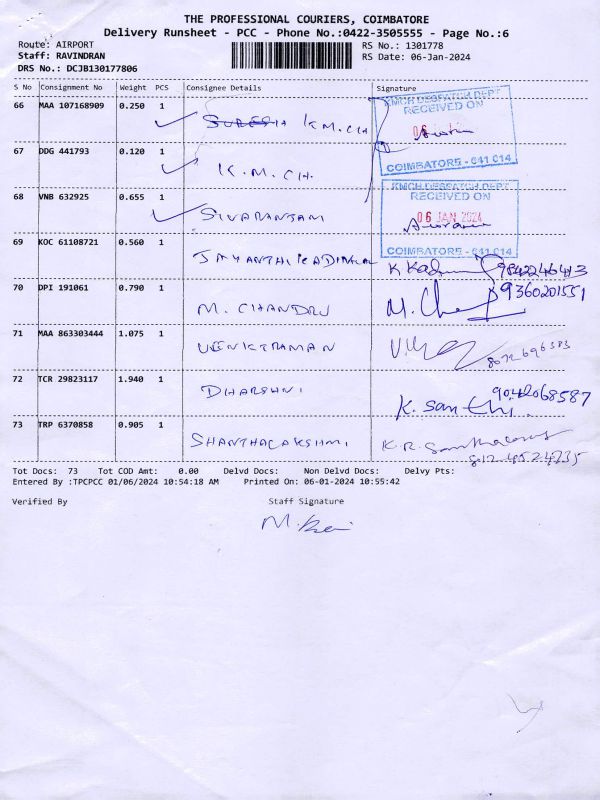 THE PROFESSIONAL COURIERS, COIMBATORE
Delivery Runsheet - PCC - Phone No.:0422-3505555 - Page No.:6
Route: AIRPORT RS No.: 1301778
Staff: RAVINDRAN RS Date: 06-Jan-2024
DRS No.: DCJB130177806
S No Consignment No Weight PCS Consignee Details Signature
66 MAA 107168909 0.250 1 K M.CH
KMCH DESPATCH DEPT
RECEIVED ON
COIMBATORE - 641 014
67 DDG 441793 0.120 1 K.M.CH.
68 VNB 632925 0.655 1 SIVARANJANI
KMCH DESPATCH DEPT
RECEIVED ON
06 JAN 2024
COIMBATORE - 641 014
69 KOC 61108721 0.560 1
70 DPI 191061 0.790 1 M. CHANDRU 9360201551
71 MAA 863303444 1.075 1 VENKTRAMAN
72 TCR 29823117 1.940 1 DHARSHNI K. Santhi. 9042068587
73 TRP 6370858 0.905 1 SHANTHALAKSHMI K.R.
Tot Docs: 73 Tot COD Amt: 0.00 Delvd Docs: Non Delvd Docs: Delvy Pts:
Entered By :TPCPCC 01/06/2024 10:54:18 AM Printed On: 06-01-2024 10:55:42
Verified By Staff Signature